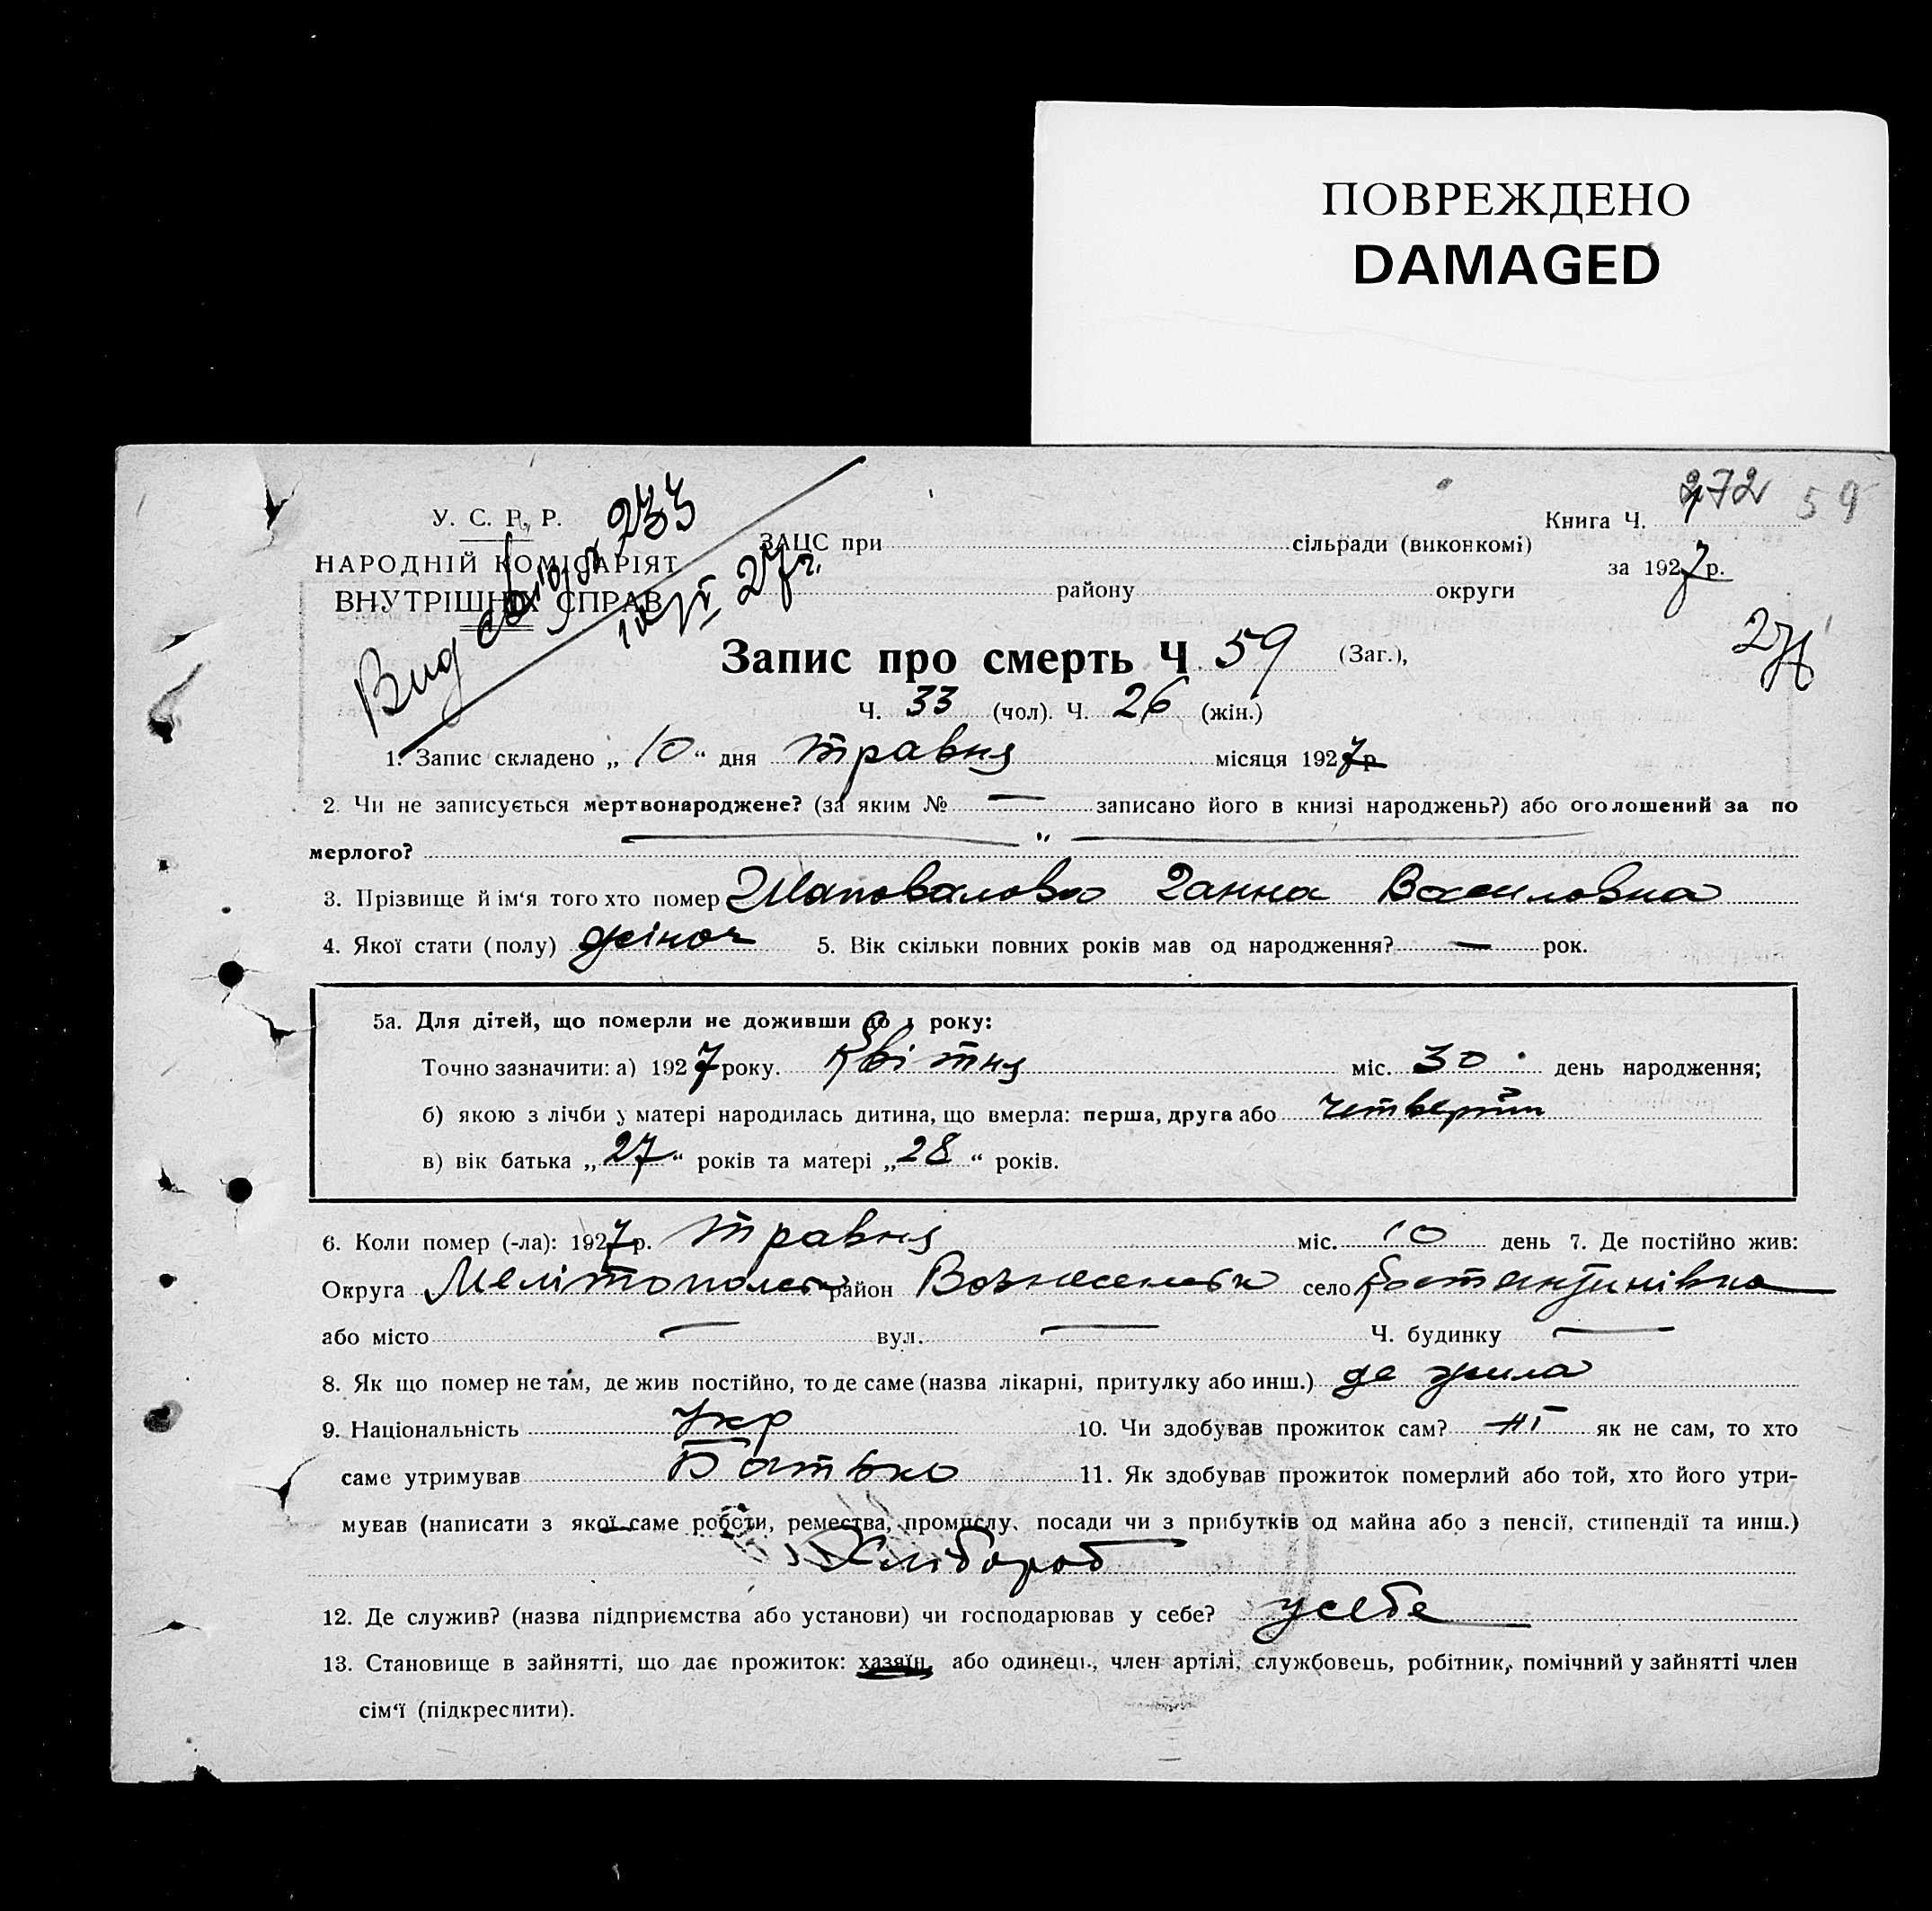 ПОВРЕЖДЕНО
DAMAGED
272 59
У. С. Р. Р.
НАРОДНІЙ КОМІСАРІЯТ
ВНУТРІШНІХ СПРАВ
Вид 233
27 г.
ЗАЦС при сільради (виконкомі)
району округи
Книга Ч.
за 1927 р.
Запис про смерть Ч 59 (Заг.),
Ч. 33 (чол). Ч. 26 (жін.)
1. Запис складено „ 10 “ дня травня місяця 1927 р
2. Чи не записується мертвонароджене? (за яким № — записано його в книзі народжень?) або оголошений за по
мерлого? — " —
3. Прізвище й ім‘я того хто помер Шаповалова Ганна Василовна
4. Якої стати (полу) жіноч 5. Вік скільки повних років мав од народження? — рок.
5а. Для дітей, що померли не доживши до 1 року:
Точно зазначити: а) 1927 року. Квітня міс. 30 день народження;
б) якою з лічби у матері народилась дитина, що вмерла: перша, друга або четвертий
в) вік батька „ 27 “ років та матері „ 28 “ років.
6. Коли помер (-ла): 1927 р. травня міс. 10 день 7. Де постійно жив:
Округа Мелітопольск район Вознесенськ село Костантинівка
або місто — вул. — Ч. будинку —
8. Як що помер не там, де жив постійно, то де саме (назва лікарні, притулку або инш.) де жила
9. Національність Укр 10. Чи здобував прожиток сам? ні як не сам, то хто
саме утримував Батько 11. Як здобував прожиток померлий або той, хто його утри-
мував (написати з якої саме роботи, ремества, промислу, посади чи з прибутків од майна або з пенсії, стипендії та инш.)
Хлібороб
12. Де служив? (назва підприємства або установи) чи господарював у себе? у себе
13. Становище в зайнятті, що дає прожиток: хазяїн, або одинець, член артілі, службовець, робітник, помічний у зайнятті член
сім‘ї (підкреслити).